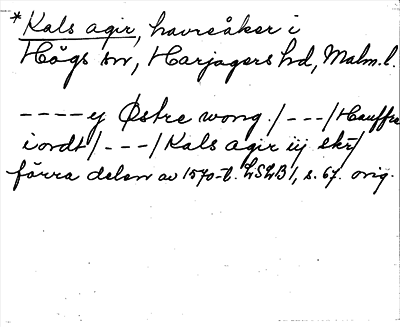 * Kals agir, havreåker i
Högs sn, Harjagers hd, Malm. l.
----y Østre wong. /---/ Hauffre
i ordt /---/ Kals agir iij skr/
förra delen av 1570-t. LSLB 1, s. 67. orig.